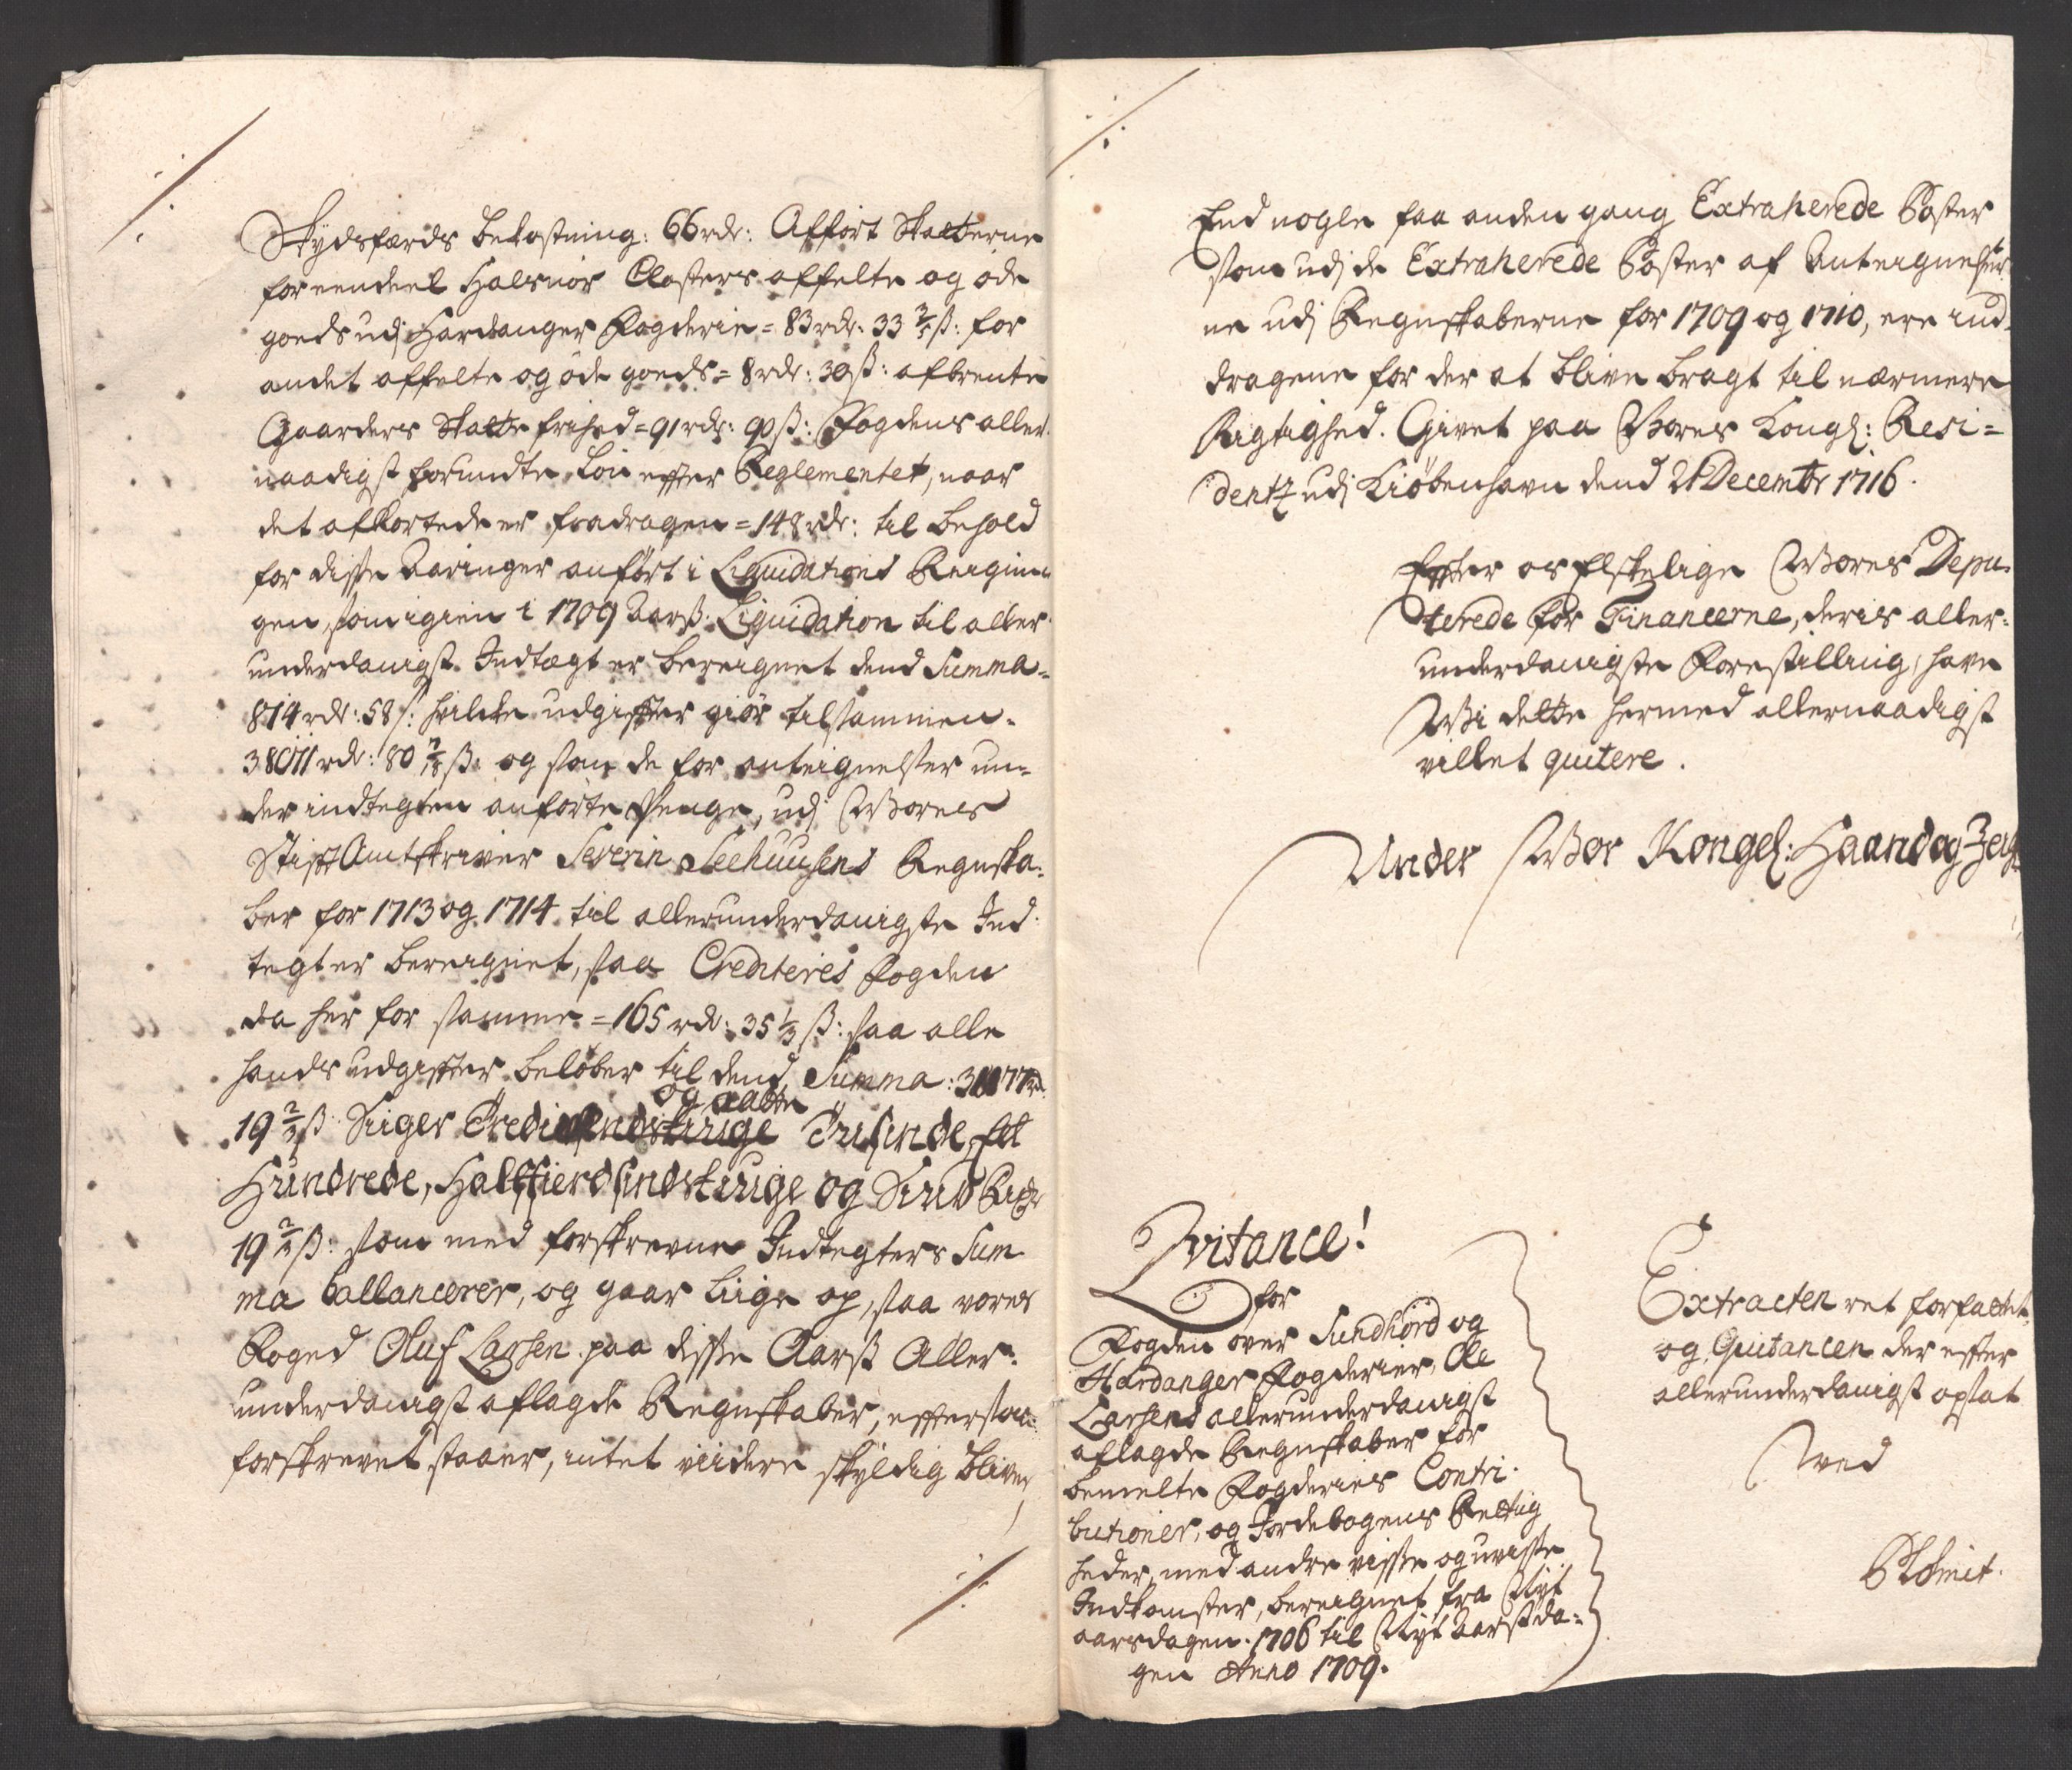 Skydsfærds bekostning: 66 rdr: Affört Skatterne
for eendeel Halsnöe Closters affelte og öde
goeds udj Hardanger Fogderie = 83 rdr: 33 2/5 ß: for
andet affelte og öde goeds = 8 rdr: 30 ß: afbrente
Gaarders Skatte frihed = 91 rdr: 90 ß: Fogdens aller
naadigst forundte Løn effter Reglementet, naar
det afkortede er fradragen = 148 rdr: til behold
for disse Aaringer anfört i Liquidations Reigin
gen, som igien i 1709 Aarß Liquidation til aller
underdanigst Indtægt er bereignet dend Summa =
814 rdr: 58 ß: hvilcke udgiffter giör tilsammen =
38011 rdr: 80 7/8 ß: og som de for anteignelser un=
der indtegten anförte Penge, udj Wores
Stifft Amtskriver Severin Seehuusens Regnska=
ber for 1713 og 1714 til allerunderdanigste Ind=
tegt er bereignet, saa Crediteres Fogden
da her for samme = 165 rdr: 35 1/3 ß: saa alle
hands udgiffter belöber til dend Summa: 38177 rd
og aatte
19 2/3 ß Siiger Tredive Tusinde Et
Hundrede, Halffierdsindstiuge og Siuv Rixdr
19 2/3 ß: som med forskrevne Indtegters Sum
ma ballancerer, og gaar liige op, saa vores
Foged Oluf Larsen paa disse Aarß Aller=
underdanigst aflagde Regnskaber, effter som
forskrevet staaer, intet viidere skyldig bliver,
End nogle faa anden gang Extraherede Poster
som udj de Extraherede Poster af Anteignelser
ne udj Regnskaberne for 1709 og 1710, ere ind=
dragene for der at blive bragt til nærmere
Rigtighed. Givet paa Vores Kongl: Resi=
dentz udj Kiöbenhavn dend 21 Decembr 1716.
Effter os Elskelige Wores Depu=
terede for Financerne, deris aller=
underdanigste Forestilling, have
Wi dette hermed allernaadigst
villet quitere.
Under Wor Kongel: Haand og Zeig
Qvitance!
for
Fogden over Sundhörd og
Hardanger Fogderier, Ole
Larsens allerunderdanigst
aflagde Regnskaber for
bemelte Fogderies Contri=
butioner, og Jordebogens Rettig
heder, med andre visse og uvisse
Indkomster, bereignet fra Nyt
aarsdagen 1706 til Nyt Aarsda=
gen Anno 1709.
Extracten ret forfattet,
og Quitancen der effter
allerunderdanigst opsat
Ved